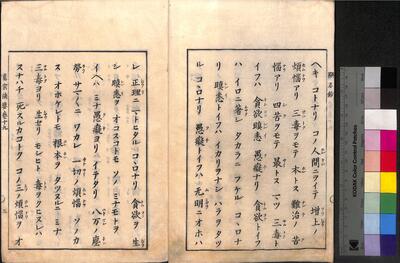 ヘキコトナリコノ人間ニヲイテ増上ノ
煩惱アリ三毒ヲモテ本トス難治ノ苦
惱アリ四苦ヲモテ最トスマツ三毒ト
イフハ貪欲瞋恚愚癡ナリ貪欲トイフ
ハイロニ著シタカラニフケルコヽロナ
リ瞋恚トイフハイカリヲナシハラヲタツ
ルコヽロナリ愚癡トイフハ无明ニオホハ
レ正理ニマトヒタルコヽロナリ貪欲ヲ生
シ瞋恚ヲオコスコトモソノミナモトヲ
イヘハミナ愚癡ヨリイテタリ八万ノ塵
勞サマ〱ニワカレ一切ノ煩惱ソノカ
スオホケレトモ根本ヲタツヌルニミナ
三毒ヨリ生セリモシヒト毒ヲクヒヌレハ
スナハチ死スルカコトクコノ三ノ煩惱ヲオ
眞宗法要卷十九